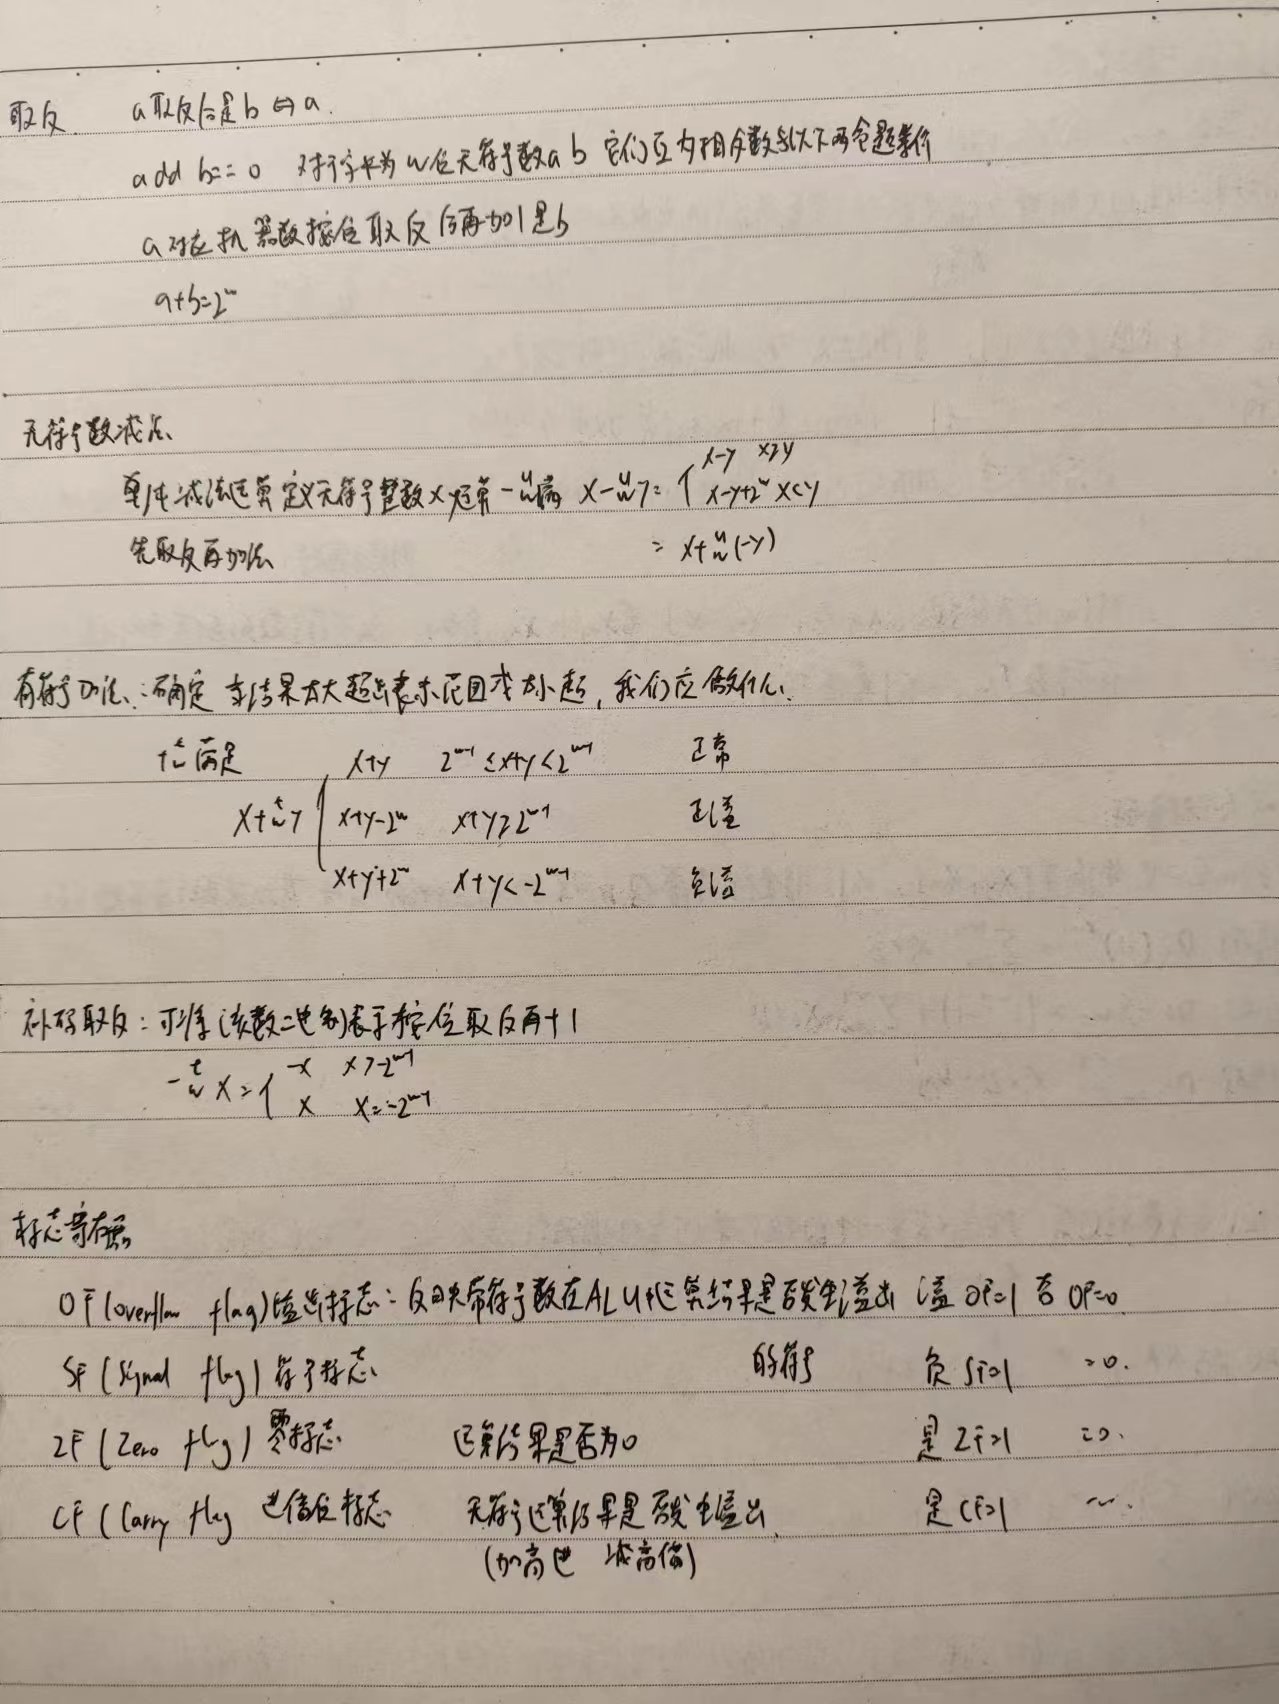 取反 a取反后是b ⇔ a.
add b == 0 对于字长为w位无符号数a b 它们互为相反数与以下两命题等价
a对应机器数按位取反后再加1是b
a+b=2^w
无符号数减法
单纯减法运算 定义无符号整数x y运算 -^u_w 满 x -^u_w y = { x-y x≥y
x-y+2^w x<y
先取反再加法 = x +^u_w (-y)
有符号加法: 确定 当结果太大超出表示范围或太小超, 我们应做什么.
+^t_w 满足 x+y 2^{w-1} ≤ x+y < 2^{w-1} 正常
x +^t_w y { x+y-2^w x+y ≥ 2^{w-1} 正溢
x+y+2^w x+y < -2^{w-1} 负溢
补码取反: 可将该数二进制表示按位取反再+1
-^t_w x = { -x x > -2^{w-1}
x x = -2^{w-1}
标志寄存器
OF (overflow flag) 溢出标志: 反映带符号数在ALU中运算结果是否发生溢出 溢 OF=1 否 OF=0.
SF (signal flag) 符号标志 的符号 负 SF=1 =0.
ZF (Zero flag) 零标志 运算结果是否为0 是 ZF=1 =0.
CF (Carry flag 进借位标志 无符号运算结果是否发生溢出 是 CF=1 ~.
(加高进 减高借)